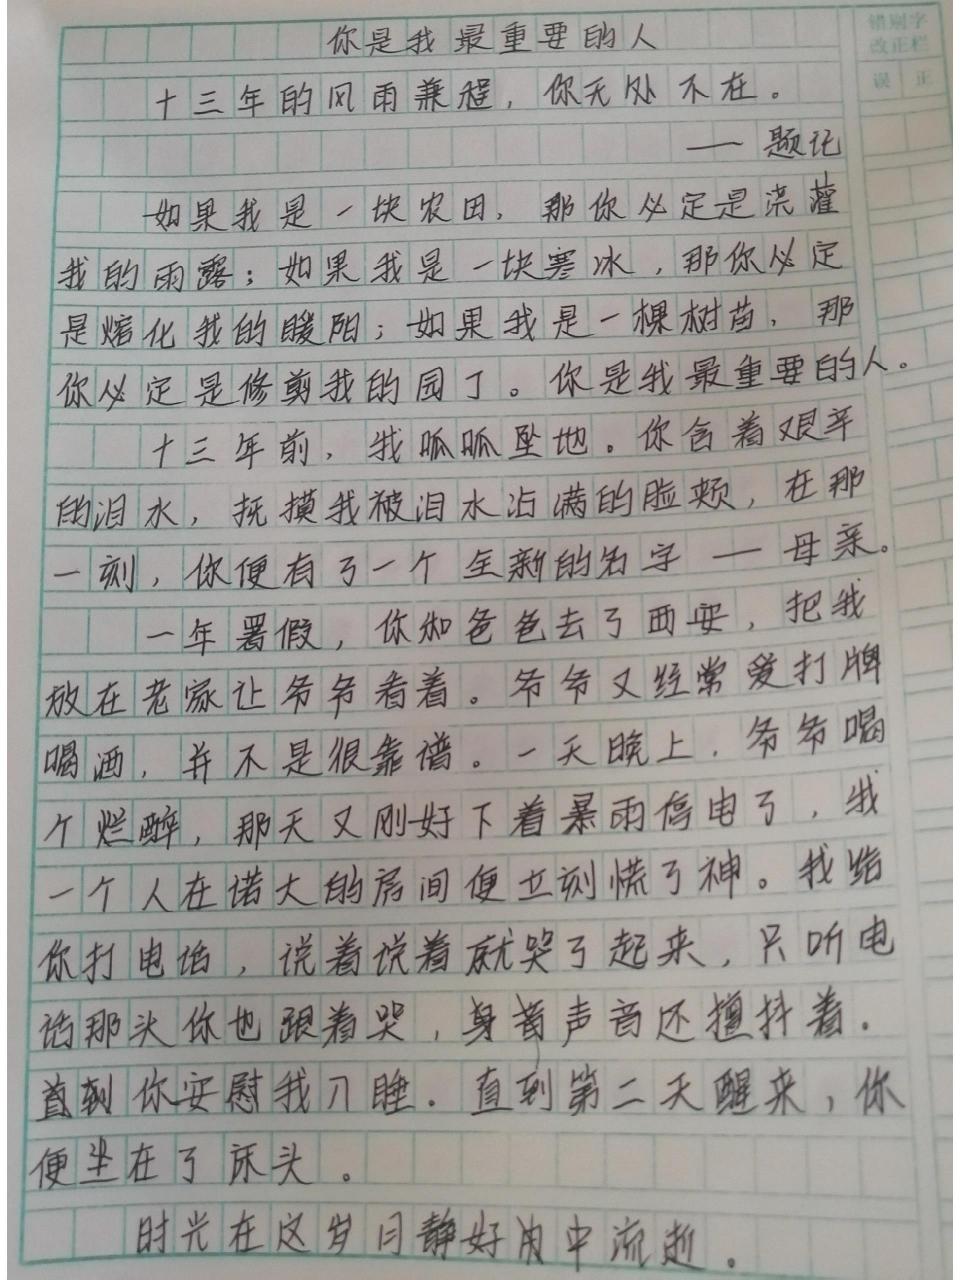 你是我最重要的人
错别字
改正栏
误 正
十三年的风雨兼程，你无处不在。
——题记
如果我是一块农田，那你必定是浇灌
我的雨露；如果我是一块寒冰，那你必定
是熔化我的暖阳；如果我是一棵树苗，那
你必定是修剪我的园丁。你是我最重要的人。
十三年前，我呱呱坠地。你含着艰辛
的泪水，抚摸我被泪水沾满的脸颊，在那
一刻，你便有了一个全新的名字——母亲。
一年暑假，你和爸爸去了西安，把我
放在老家让爷爷看着。爷爷又经常爱打牌
喝酒，并不是很靠谱。一天晚上，爷爷喝
个烂醉，那天又刚好下着暴雨停电了，我
一个人在诺大的房间便立刻慌了神。我给
你打电话，说着说着就哭了起来，只听电
话那头你也跟着哭，声音还抖着。
直到你安慰我入睡。直到第二天醒来，你
便坐在了床头。
时光在这岁月静好中流逝。